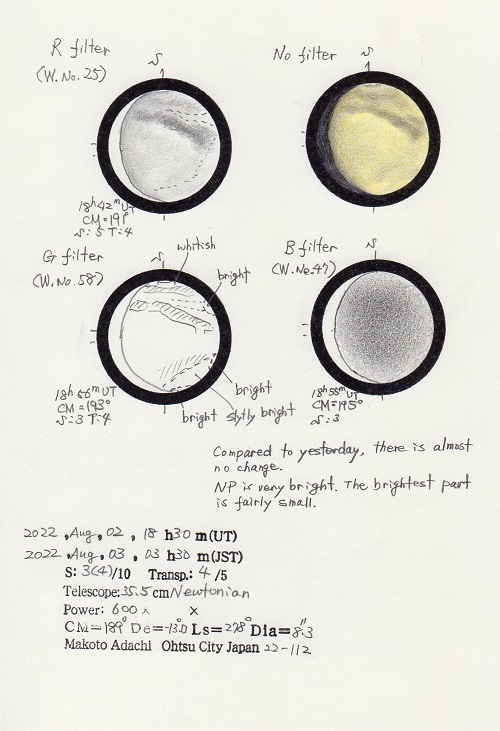 R filter
(W.No.25)
S
No filter
S
18h42mUT
CM=191°
S:5 T:4
G filter
(W.No.58)
S
whitish
bright
B filter
(W.No.47)
S
18h56mUT
CM=193°
S:3 T:4
bright
bright slytly bright
18h55mUT
CM=195°
S:3
Compared to yesterday, there is almost
no change.
NP is very bright. The brightest part
is fairly small.
2022 ,Aug, 02 , 18 h30 m(UT)
2022 ,Aug, 03 , 03 h30 m(JST)
S: 3(4)/10 Transp.: 4 /5
Telescope:35.5cm Newtonian
Power: 600 x x
CM=189° De=-13.0 Ls=278° Dia=8.3"
Makoto Adachi Ohtsu City Japan 22-112